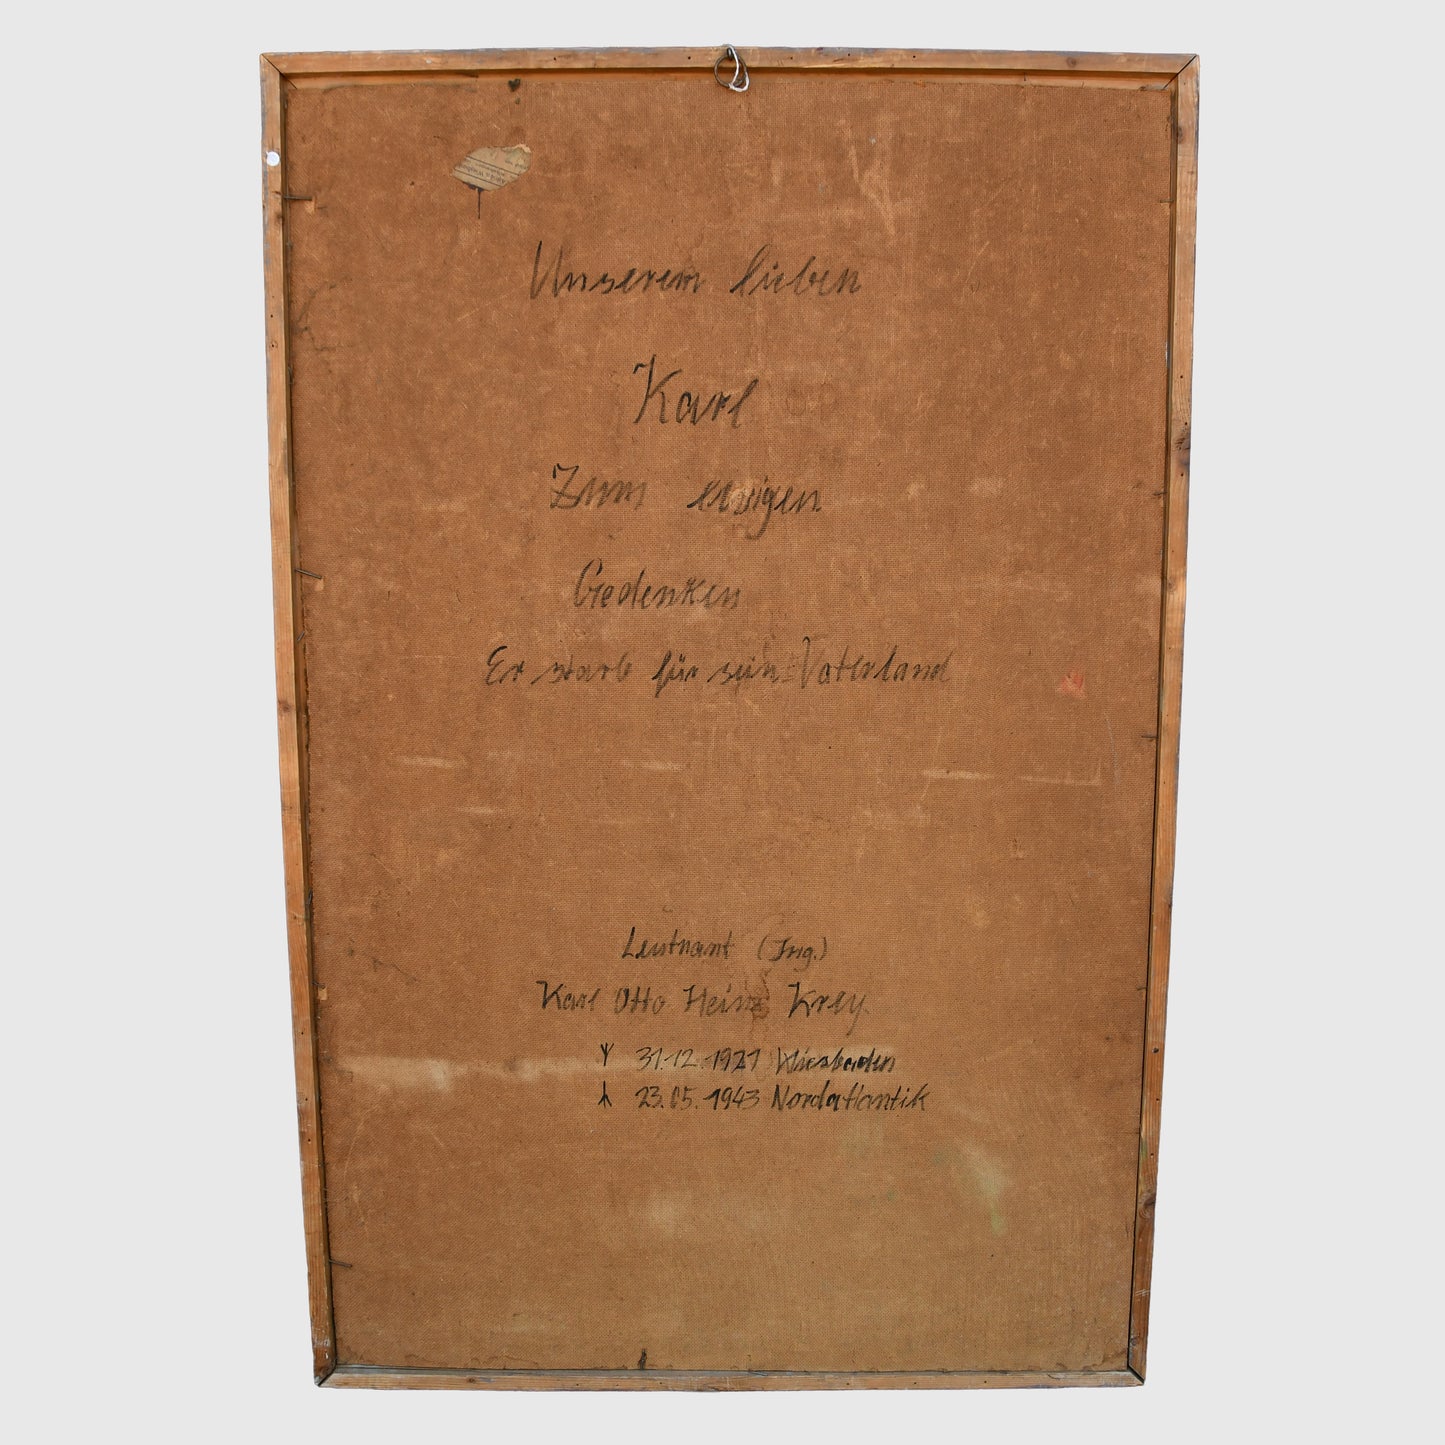 Unserem lieben
Karl
Zum ewigen
Gedenken
Er starb für sein Vaterland
Leutnant (Ing.)
Karl Otto Heinz Krey
ᛉ 31.12.1921 Wiesbaden
ᛣ 23.05.1943 Nordatlantik